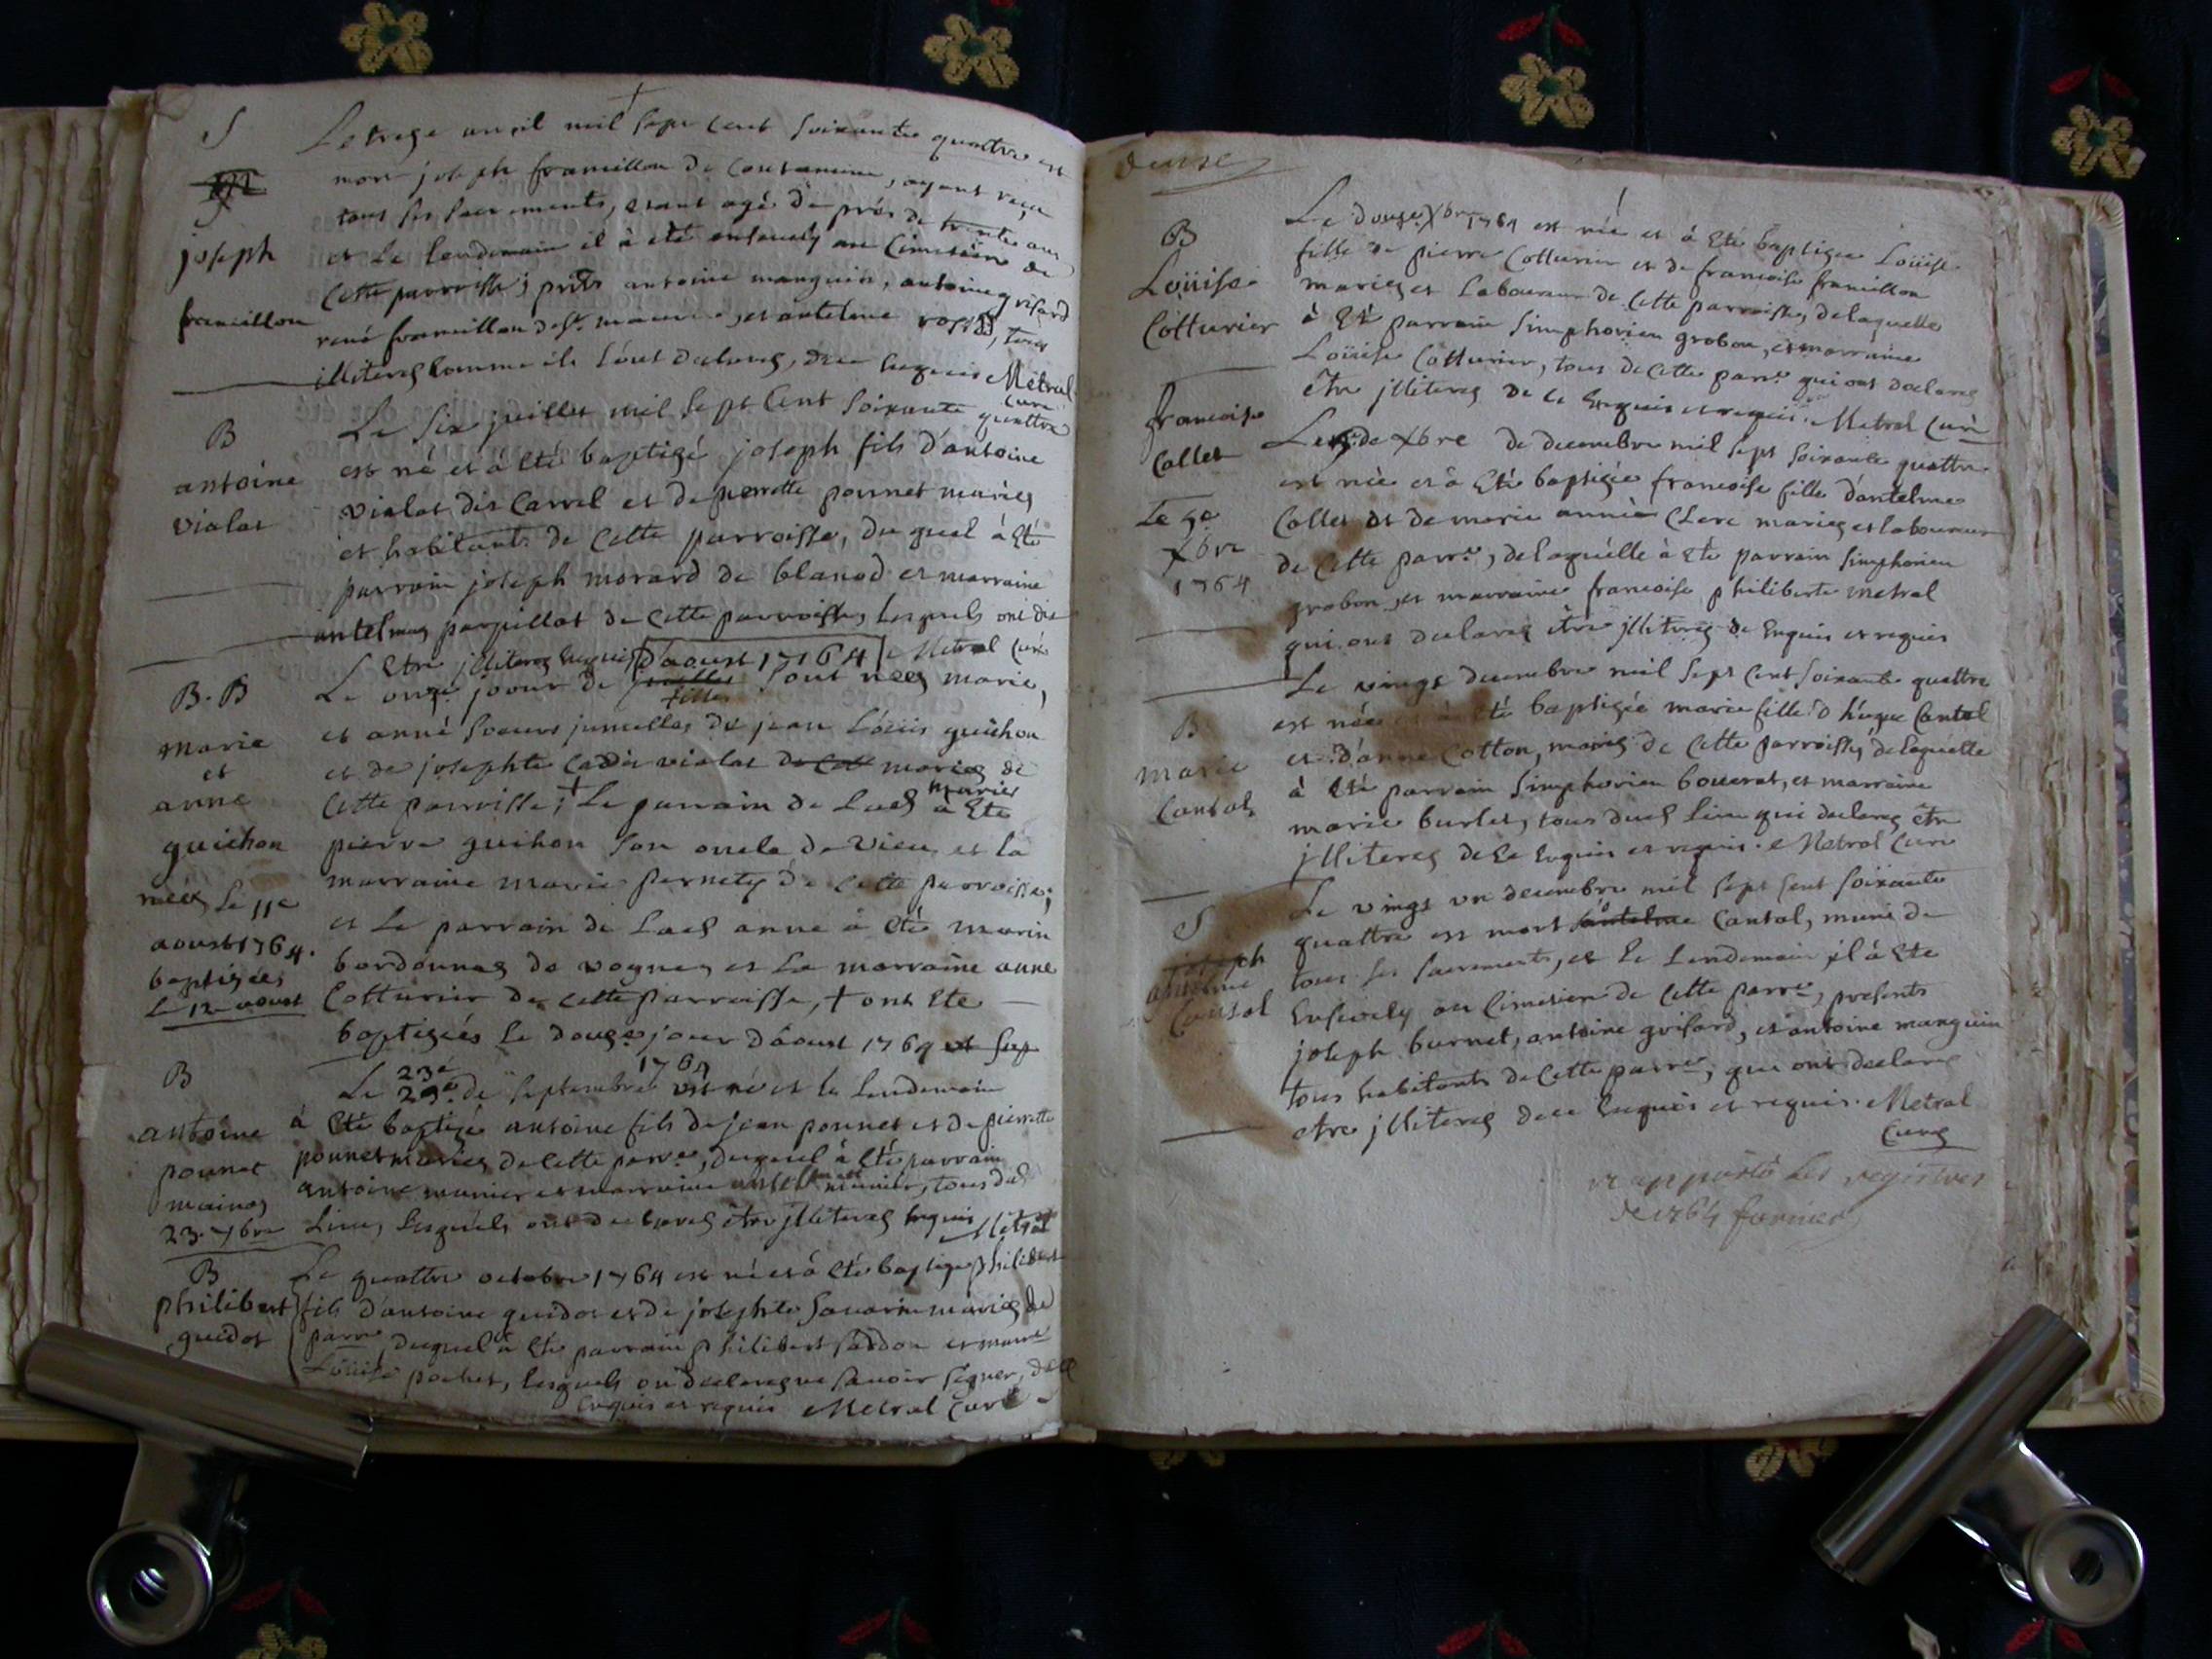 S
joseph
francillon
Le treze avril mil sept cent soixante quattre est
mort joseph francillon de Contamine, ayant reçu
tous ses sacrements, etant agé de près de trente ans
et le lendemain il à eté ensevely au Cimetière de
Cette parroisse; prets antoine manguin, antoine grisard
rené francillon de st. maurice, et antelme
illiteres comme ils sont declares, de ce enquis Métral
Curé
B
antoine
violat
Le six juillet mil sept Cent soixante quattre
est né et à eté baptizé joseph fils d'antoine
violat dit Carrel et de pierrette pounet mariés
et habitants de Cette parroisse, du quel à eté
parrain joseph morard de blanod et marraine
antelmaz parpillat de Cette parroisse, lesquels ont dit
Etre jlliteres Enquis d'aoust 1764 Metral Curé
B. B
marie
et
anne
guichon
néés le 11e
aoust 1764.
baptizées
le 12e aoust
Le onze jour de juillet sont néés marie,
filles
et anné soeurs jumelles de jean Loüis guichon
et de josephte Cadet violat de Cett mariés de
Cette parroisse; + Le parrain de Lad marie à Eté
pierre guihon son oncle de Vieu, et la
marraine marie pernety de Cette parroisse;
et le parrain de Lad anne à eté marin
bordonnas de vognes et La marraine anne
Cotturier de cette parroisse, + ont Eté
baptizéés le douze jour d'aoust 1764 et sup
B
antoine
pounet
mainos
23. 7bre
23e 1764
Le 29e de septembre est né et le lendemain
à Eté baptizé antoine fils de jean pounet et de pierrette
pounet mariés de Cette parre, duquel à Eté parrain
antoine munier et marraine munier, tous dud
Lieu, Lesquels ont declares être jlliteres Enquis Metral
B
philibert
guidot
Le quattre octobre 1764 est né et à eté baptizé philibert
fils d'antoine guidot et de josephte savarin mariés de
parre, duquel à Eté parrain philibert sardon et marre
Loüise pochet, lesquels on declares ne savoir signer, de ce
Enquis et requis Metral Curé
douse
B
Loüise
Cotturier
Le douze Xbre 1764 est née et à Eté baptizée Loüise
fille de pierre Cotturier et de francoise francillon
mariés et Laboureur de Cette parroisse, de laquelle
à Eté parrain simphorien grobon, et marraine
Loüise Cotturier, tous de Cette parre. qui ont declares
être jlliteres de ce Enquis et requis. Metral Curé
francoise
Collet
Le 5e
Xbre
1764
Le 5e de Xbre de decembre mil sept soixante quattre
est née et à Eté baptizée francoise fille d'antelme
Collet et de marie année Clerc mariés et laboureur
de Cette parre, de laquelle à Eté parrain simphorien
grobon, et marraine francoise philiberte metral
qui ont declares être jlliteres de Enquis et requis
B
marie
Cantal
Le vingt decembre mil sept Cent soixante quattre
est née et à été baptizée marie fille d'hugue Cantal
et d'anne Cotton, mariés de Cette parroisse, de laquelle
à Eté parrain simphorien bouvrat, et marraine
marie burlet, tous dud lieu qui declares être
jlliteres de Ce Enquis et requis. Metral Curé
S
joseph
antelme
Cantal
Le vingt un decembre mil sept Cent soixante
quattre est mort antelme Cantal, muni de
tous ses sacrements, et le Lendemain jl à Eté
Ensevely au Cimetiere de Cette parre, presents
joseph burnet, antoine grisard, et antoine manguin
tous habitants de Cette parre, qui ont declares
etre jlliteres de ce Enquis et requis. Metral
Curé
rapporté les registres
de 1764